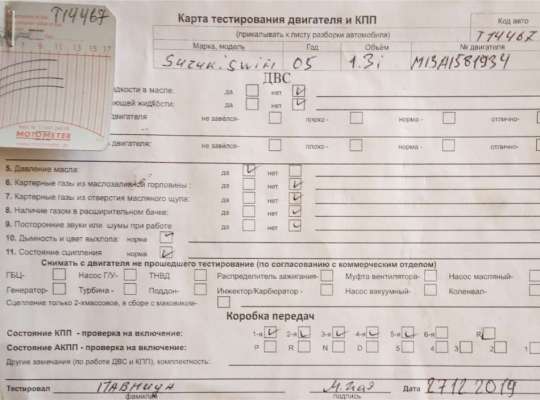 T14467
Карта тестирования двигателя и КПП
Код авто
(прикалывать к листу разборки автомобиля)
T14467
Марка, модель Год Объём № двигателя
Suzuki Swift 05 1.3i M13A1581934
7 9 11 13 15 17
MOTOMETER
ДВС
дкости в масле: да нет
ющей жидкости: да нет
двигателя не завёлся- плохо - норма - отлично-
двигателя: не завёлся- плохо - норма - отлично-
5. Давление масла: да нет
6. Картерные газы из маслозаливной горловины : да нет
7. Картерные газы из отверстия масляного щупа: да нет
8. Наличие газом в расширительном бачке: да нет
9. Посторонние звуки или шумы при работе да нет
10. Дымность и цвет выхлопа: норма
11. Состояние сцепления норма
Снимать с двигателя не прошедшего тестирование (по согласованию с коммерческим отделом)
ГБЦ- Насос Г/У- ТНВД Распределитель зажигания- Муфта вентилятора- Насос масляный-
Генератор- Турбина - Поддон- Инжектор/Карбюратор - Насос вакуумный- Коленвал-
Сцепление только 2-хмассовое, в сборе с маховиком-
Коробка передач
Состояние КПП - проверка на включение: 1-я 2-я 3-я 4-я 5-я 6-я R
Состояние АКПП - проверка на включение: P R N D 5 4 3 2 1
Другие замечания (по работе ДВС и КПП), комплектность:
Тестировал Дата 27.12.2019
фамилия подпись